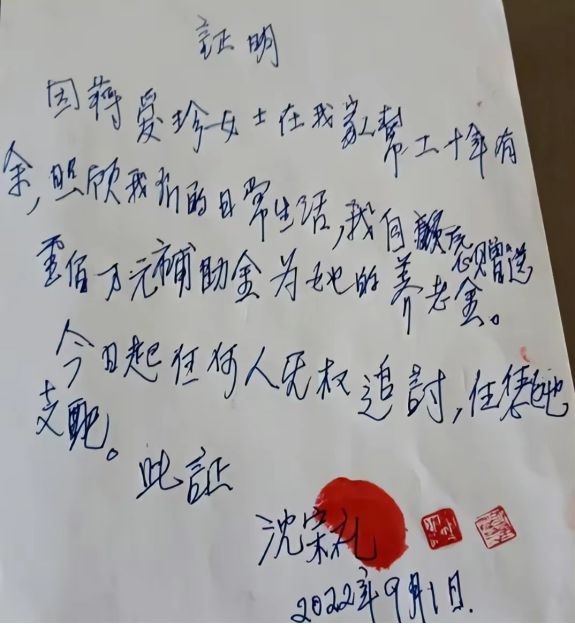 証明
因蒋爱珍女士在我家帮工十年有
余,照顾我们的日常生活,我自願贈送
壹佰万元補助金为她的养老金。
今日起任何人无权追討,任凭她
支配。
此証
沈宗礼
2022年9月1日.